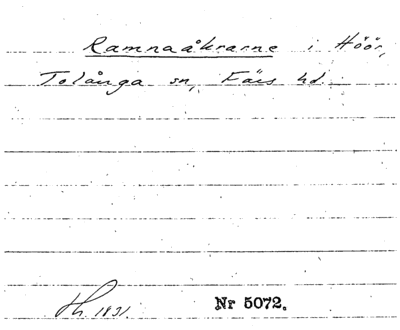 Ramnaåkrarne i Höör,
Tolånga sn, Färs hd.
Th. 1831. Nr 5072.